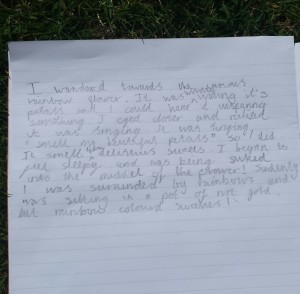 I wandord towards the enormous
rainbow flower. It was waving it's
petals and I could hear it
something I eged closer and
it was singing. It was singing,
"smell my beutiful petals" So I did.
It smelt like delicious sweets. I began to
feel sleepy. and was being suked
into the middel of the flower! Suddenly
I was surunded by rainbows and
was sitting in a pot of not gold
but rainbow coloured sweeties!